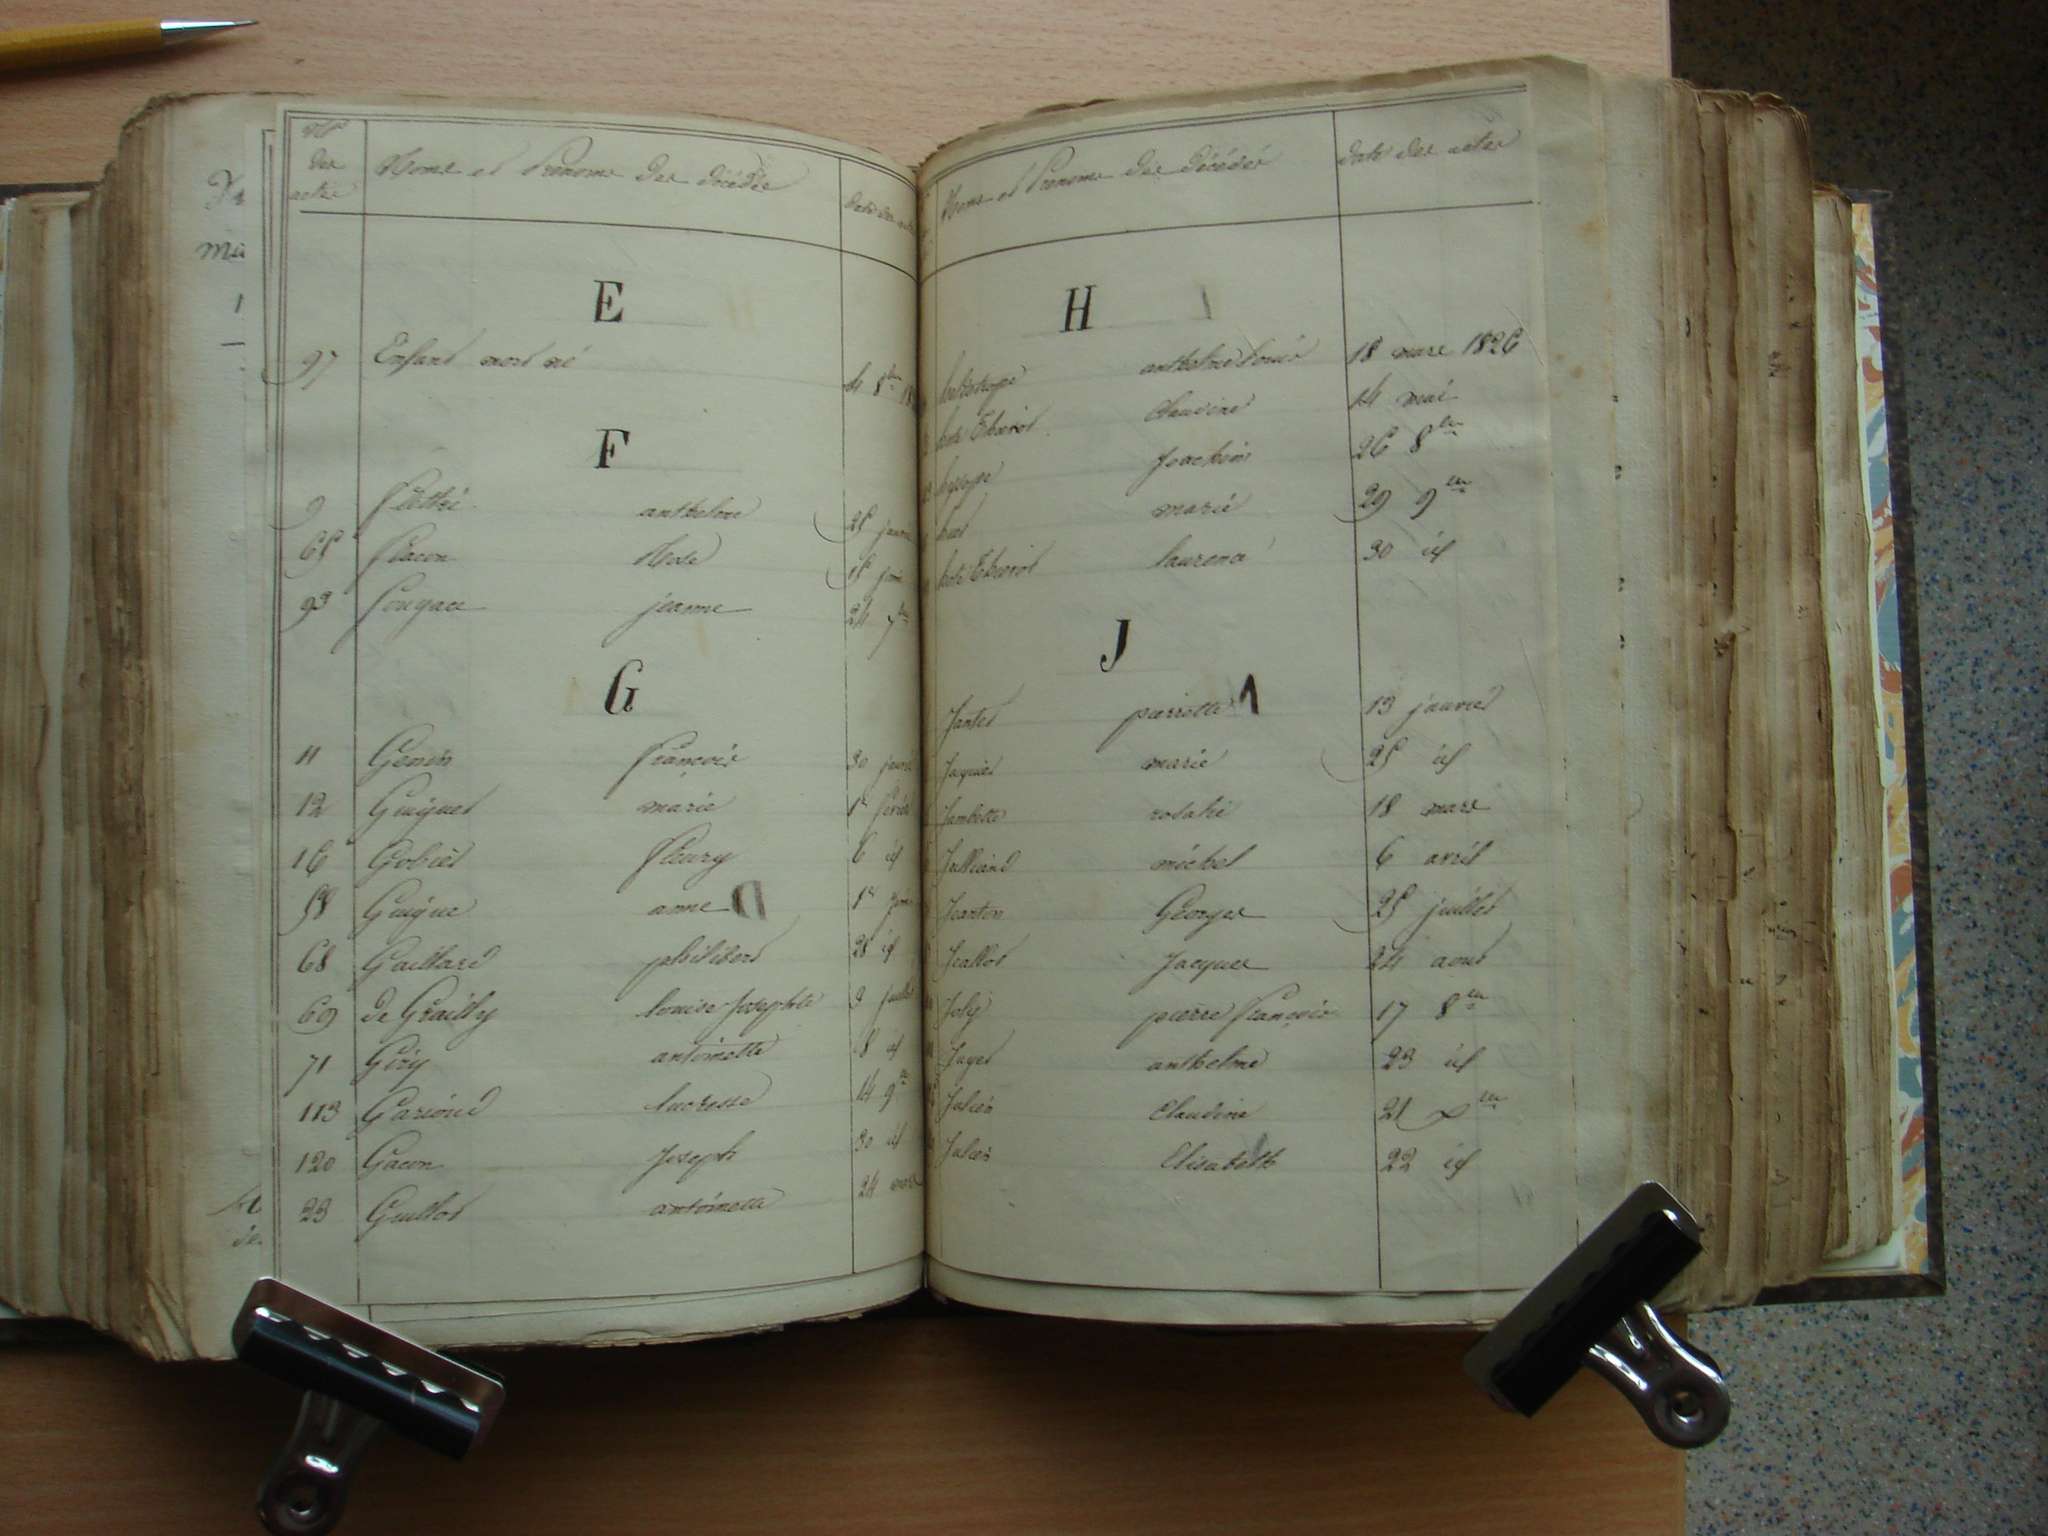 Nos des actes
Noms et Prénoms des décédés
Date des actes
E
97 Enfant mort né 14 8bre 18
F
9 anthelme 25 janvier
65 Flacon Rose 15 juin
93 Fougace jeanne 24 7bre
G
11 Genin françois 30 janvie
12 Guiguet marie 1r février
16 Gobiet fleury 6 id
58 Guigue anne 1r juin
68 Gaillard philibert 28 id
69 de Grailly louise josephte 3 juillet
71 Géry antoinette 8 id
113 Garioud lucresse 14 9re
120 Gacon Joseph 30 id
23 Guillot antoinette 24
Noms et Prénoms des décédés
Date des actes
H
anthelme louis 18 mars 1826
Claudine 14 mai
Joachim 26 8bre
marie 29 9bre
laurence 30 id
J
Jantet pierrette 13 janvier
Jaquier marie 25 id
Jambette rosalie 18 mars
Julliand michel 6 avril
Jeanton Georges 25 juillet
Jeallot Jacques 24 aout
Joly pierre françois 17 8bre
Juget anthelme 23 id
Claudine 21 xbre
Elisabeth 22 id